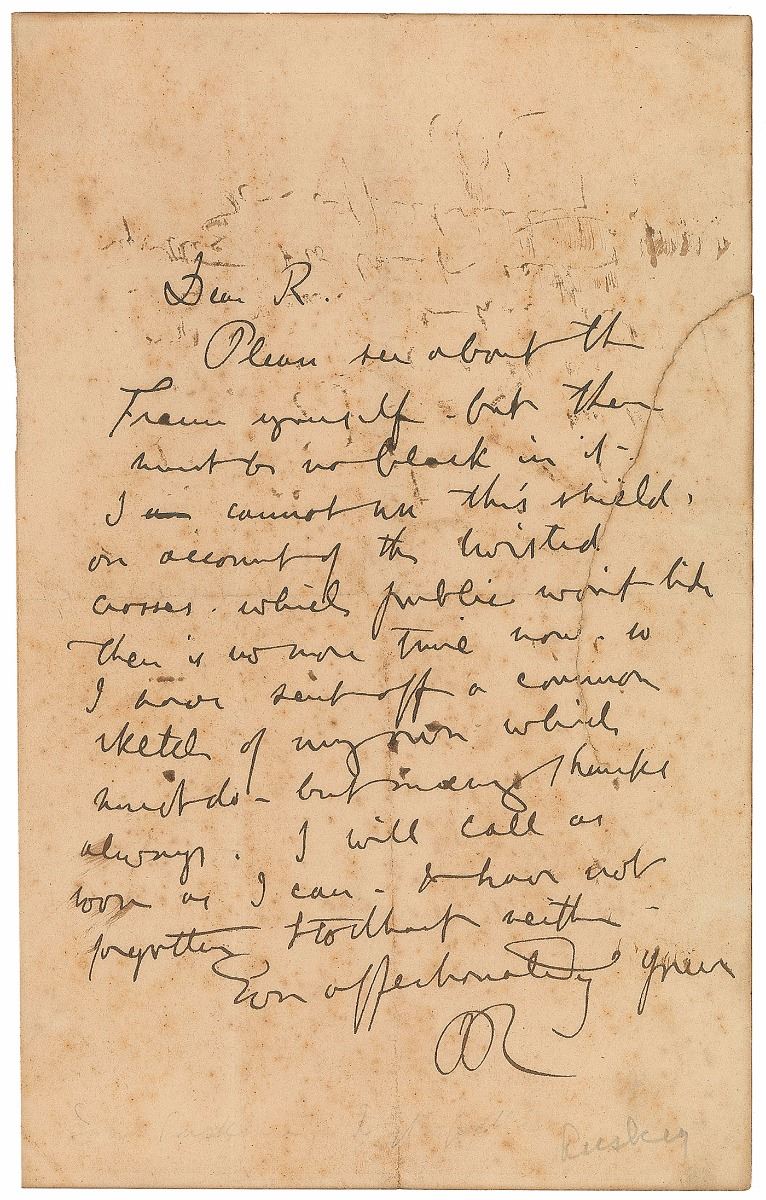 Dear R.
Please see about the
Frame yourself - but there
must be no black in it -
I cannot use this shield,
on account of the twisted
crosses. which public won't like
there is no more time now. so
I have sent off a common
sketch of my own which
must do - but many thanks
always. I will call as
soon as I can - & have not
forgotten Stodhart neither -
Ever affectionately yours
JR
Ruskin